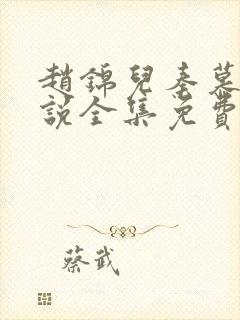 趙錦兒秦慕
說全集免費
蔡武